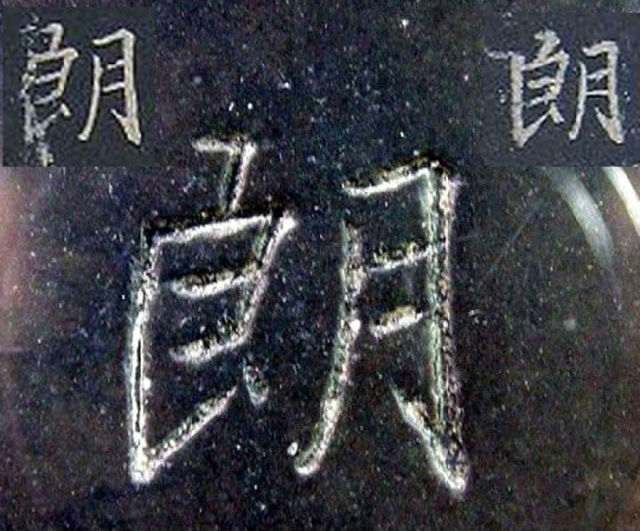 朗 朗
朗